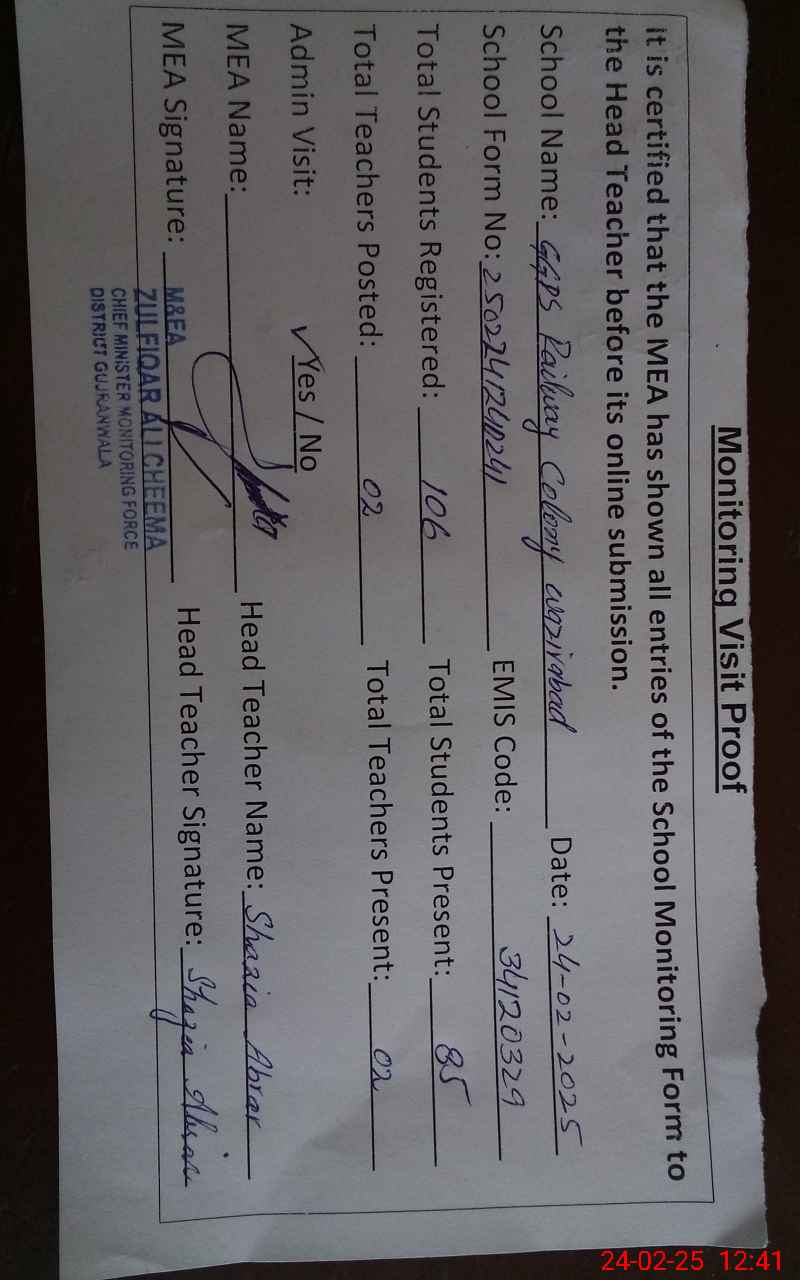 Monitoring Visit Proof
it is certified that the MEA has shown all entries of the School Monitoring Form to
the Head Teacher before its online submission.
School Name: GGPS Railway Colony wazirabad Date: 24-02-2025
School Form No: 25022412410241 EMIS Code: 34120329
Total Students Registered: 106 Total Students Present: 85
Total Teachers Posted: 02 Total Teachers Present: 02
Admin Visit: ✓Yes / No
MEA Name: Head Teacher Name: Shazia Abrar
MEA Signature: Head Teacher Signature: Shazia Abrar
M&EA
ZULFIQAR ALI CHEEMA
CHIEF MINISTER MONITORING FORCE
DISTRICT GUJRANWALA
24-02-25 12:41